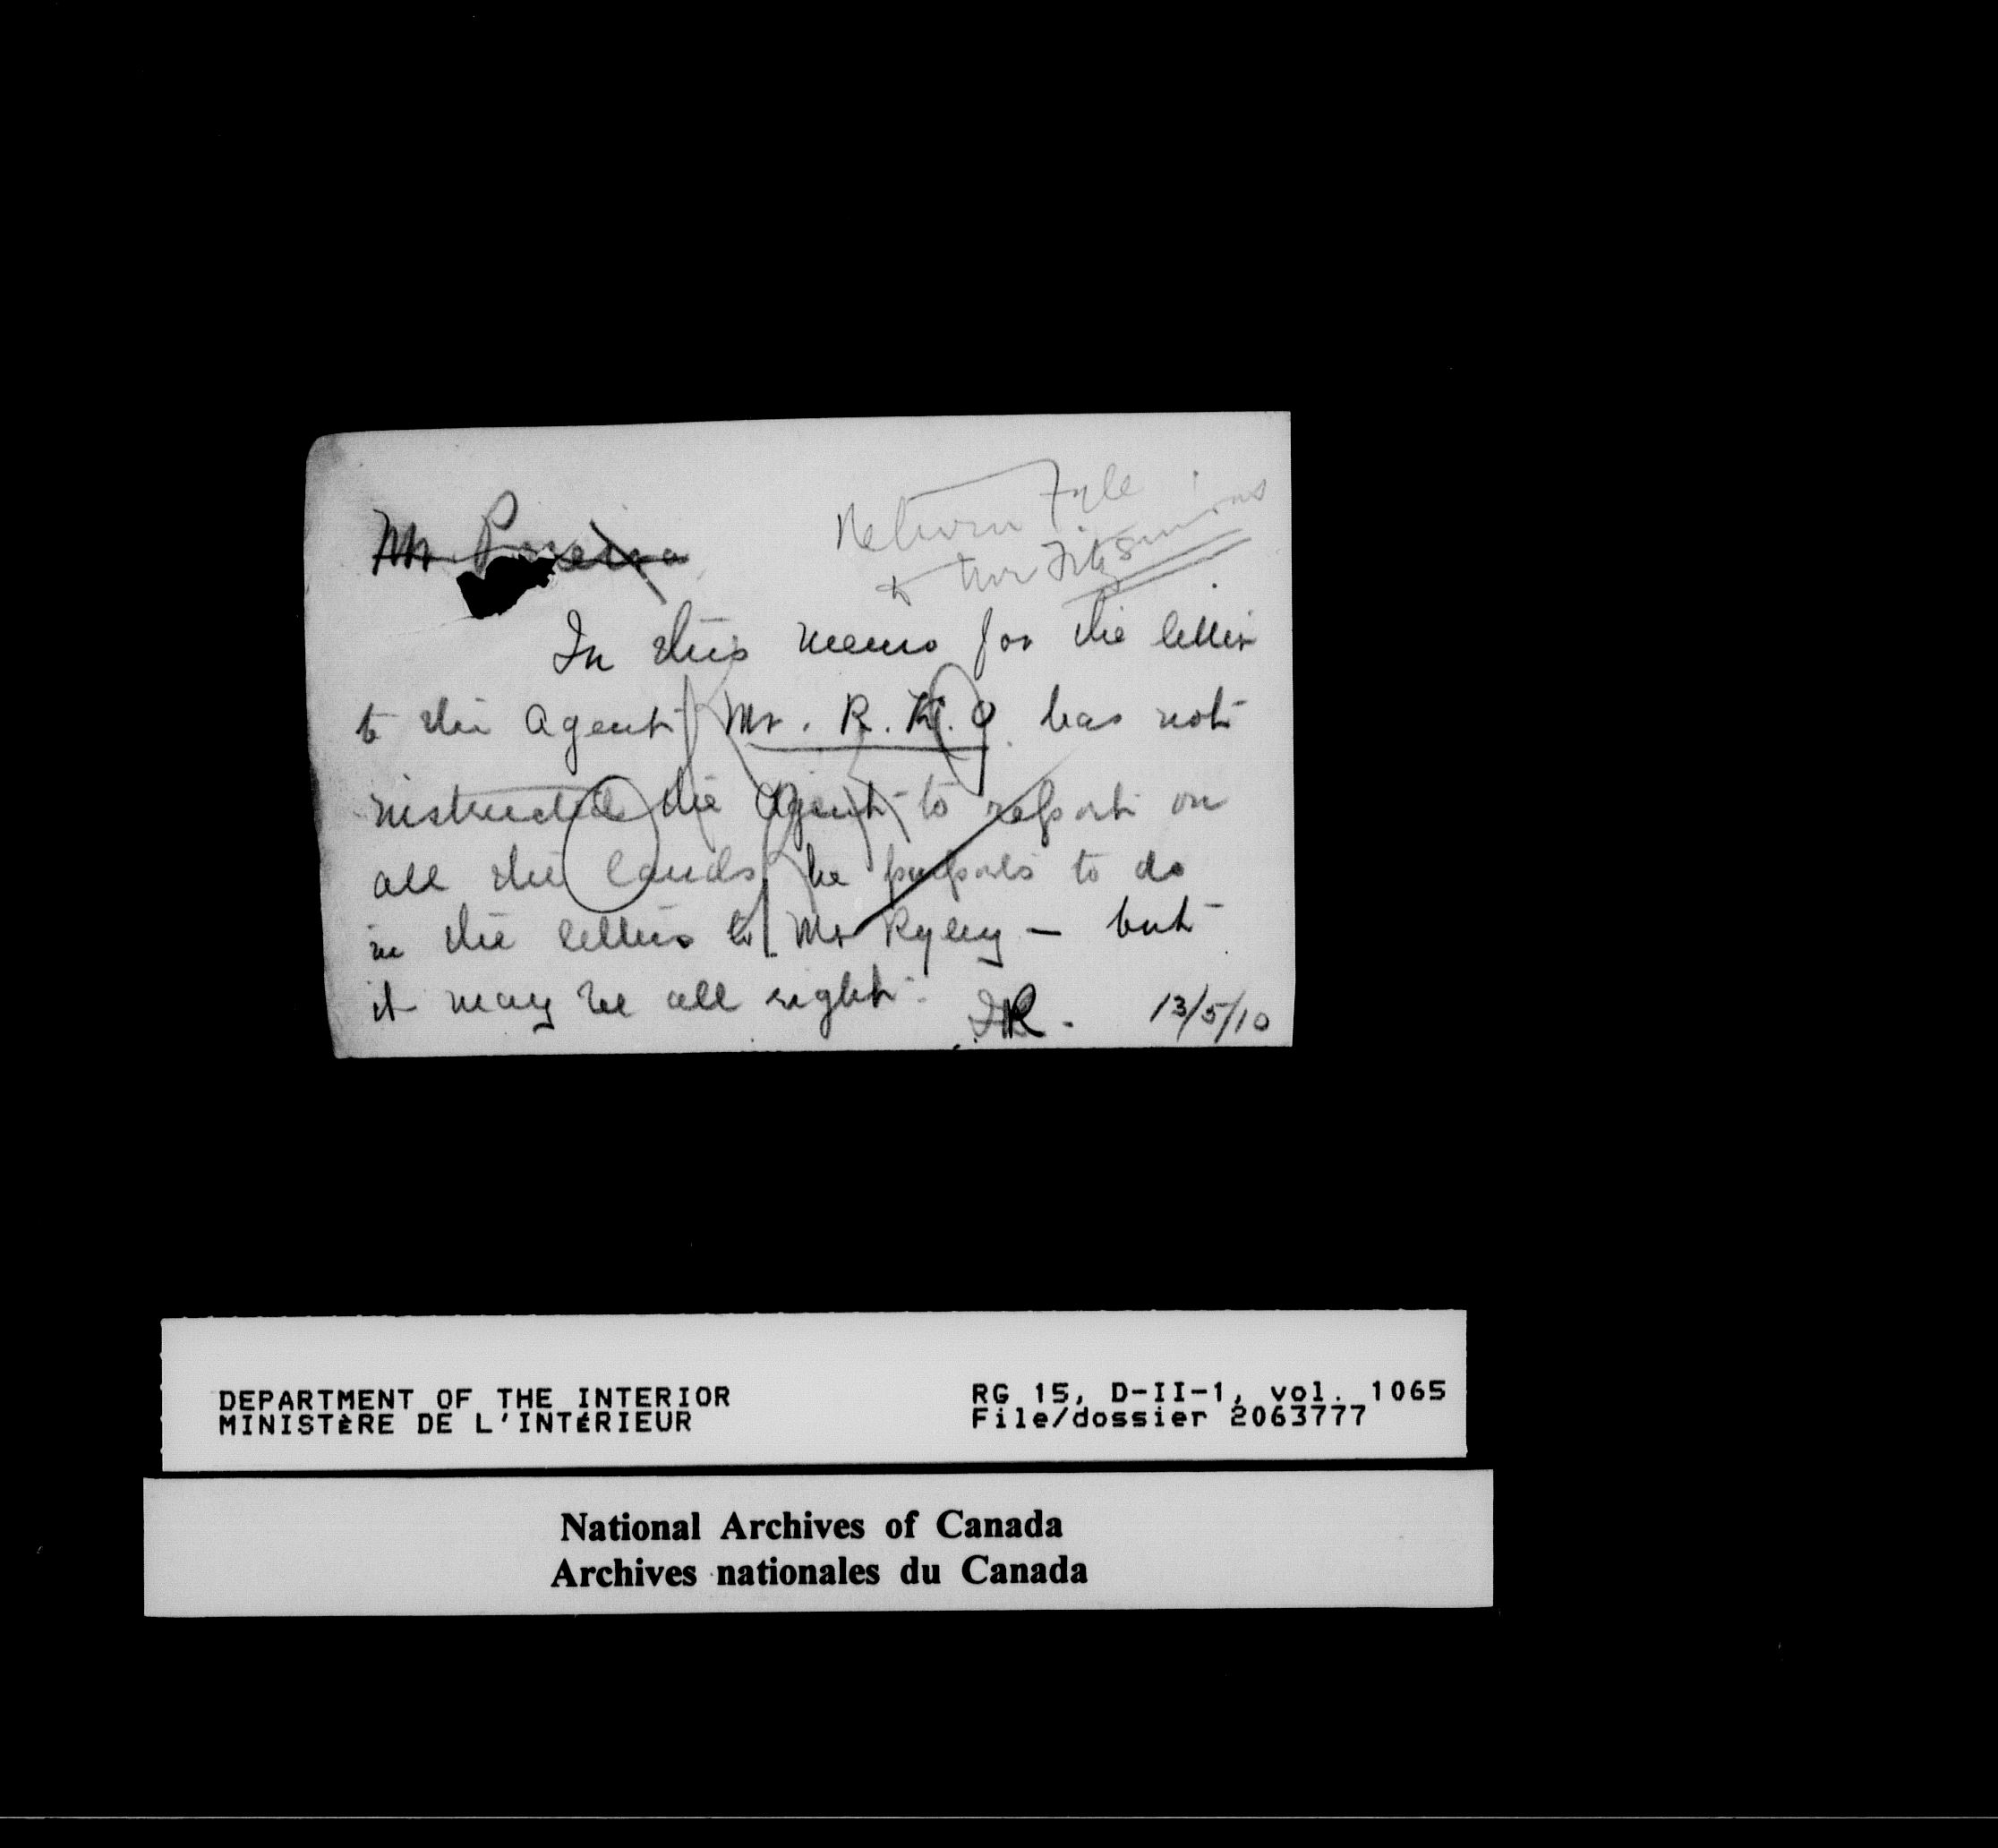 Mr Pereira
Return Fyle
to Mr Fitzsimmons
In this memo for the letter
to the Agent Mr. R. K. O. has not
instructed the Agent to report on
all the lands he purports to do
in the letters to Mr Ryley - but
it may be all right.
R. 13/5/10
DEPARTMENT OF THE INTERIOR
MINISTÈRE DE L'INTÉRIEUR
RG 15, D-II-1, vol. 1065
File/dossier 2063777
National Archives of Canada
Archives nationales du Canada